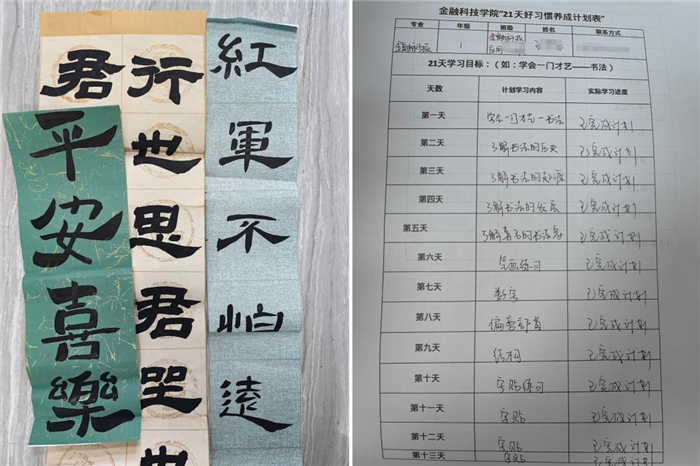 紅軍不怕遠
行也思君坐也
君
平安喜樂
金融科技学院“21天好习惯养成计划表”
专业 年级 姓名 联系方式
1
21天学习目标：（如：学会一门才艺——书法）
天数 计划学习内容 实际学习进度
第一天 学会一门才艺-书法 已完成计划
第二天 了解书法的历史 已完成计划
第三天 了解书法的起源 已完成计划
第四天 了解书法的发展 已完成计划
第五天 了解著名的书法家 已完成计划
第六天 笔画练习 已完成计划
第七天 数字 已完成计划
第八天 偏旁部首 已完成计划
第九天 结构 已完成计划
第十天 字贴练习 已完成计划
第十一天 字贴 已完成计划
第十二天 字贴 已完成计划
第十三天 字贴 已完成计划